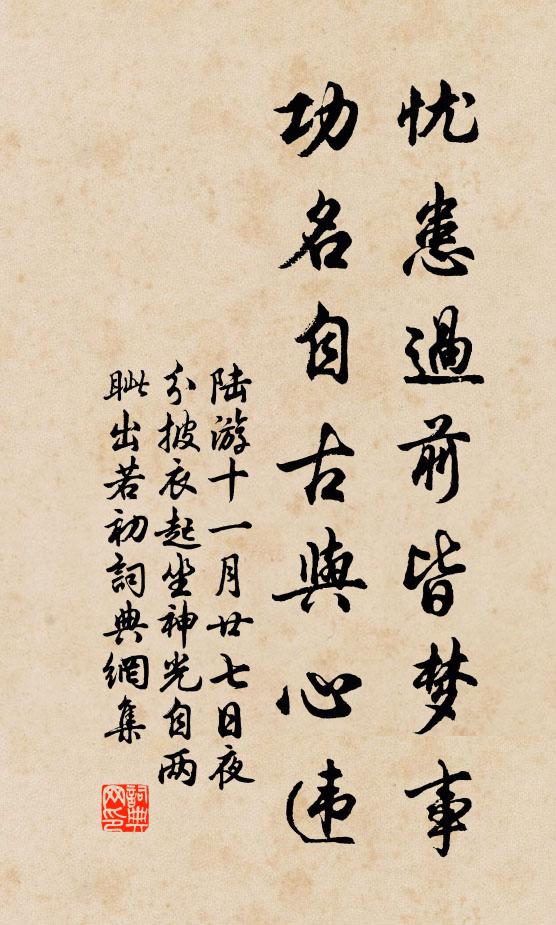 忧患過前皆梦事
功名自古與心违
陆游十一月廿七日夜
分披衣起坐神光自两
眦出若初詞典網集
詞典
网印